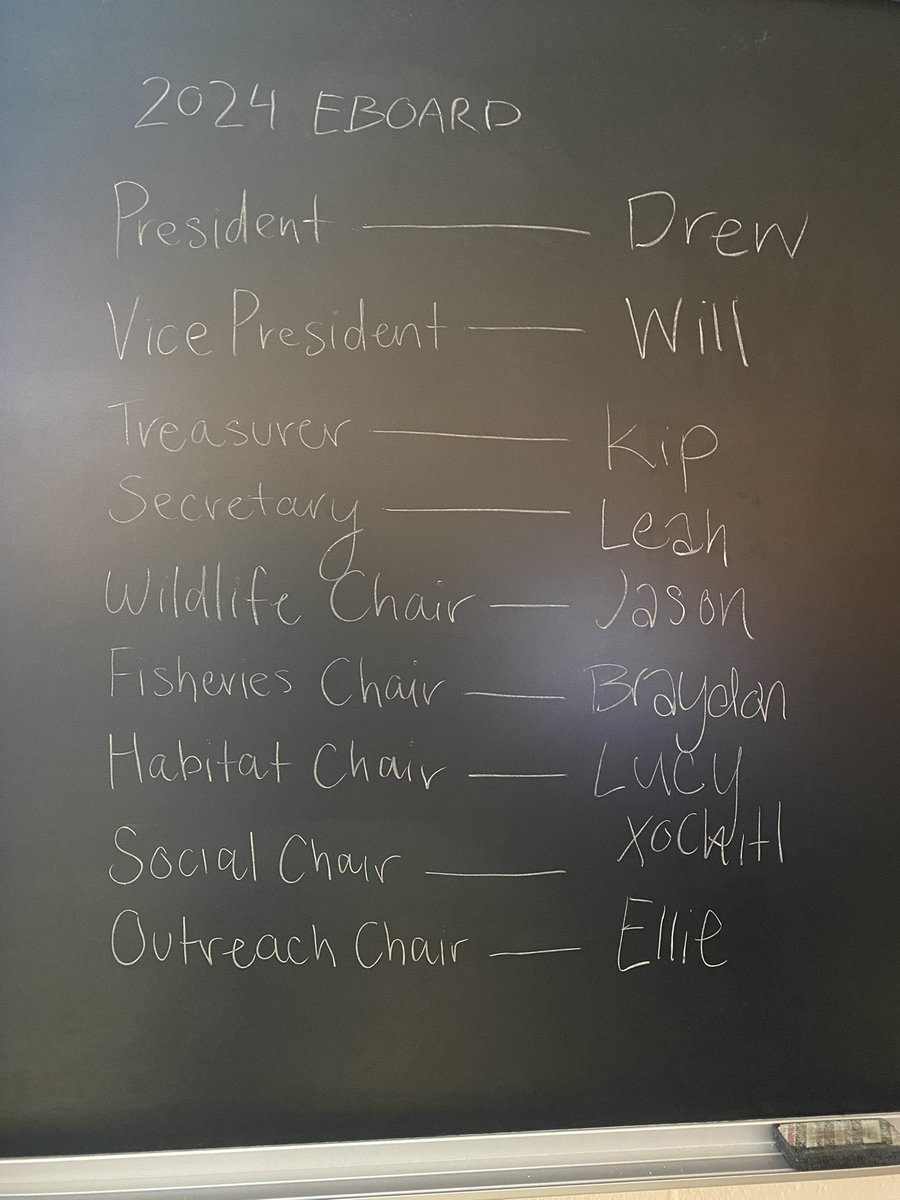 2024 EBOARD
President — Drew
Vice President — Will
Treasurer — Kip
Secretary — Leah
Wildlife Chair — Jason
Fisheries Chair — Braydan
Habitat Chair — Lucy
Social Chair — Xochitl
Outreach Chair — Ellie